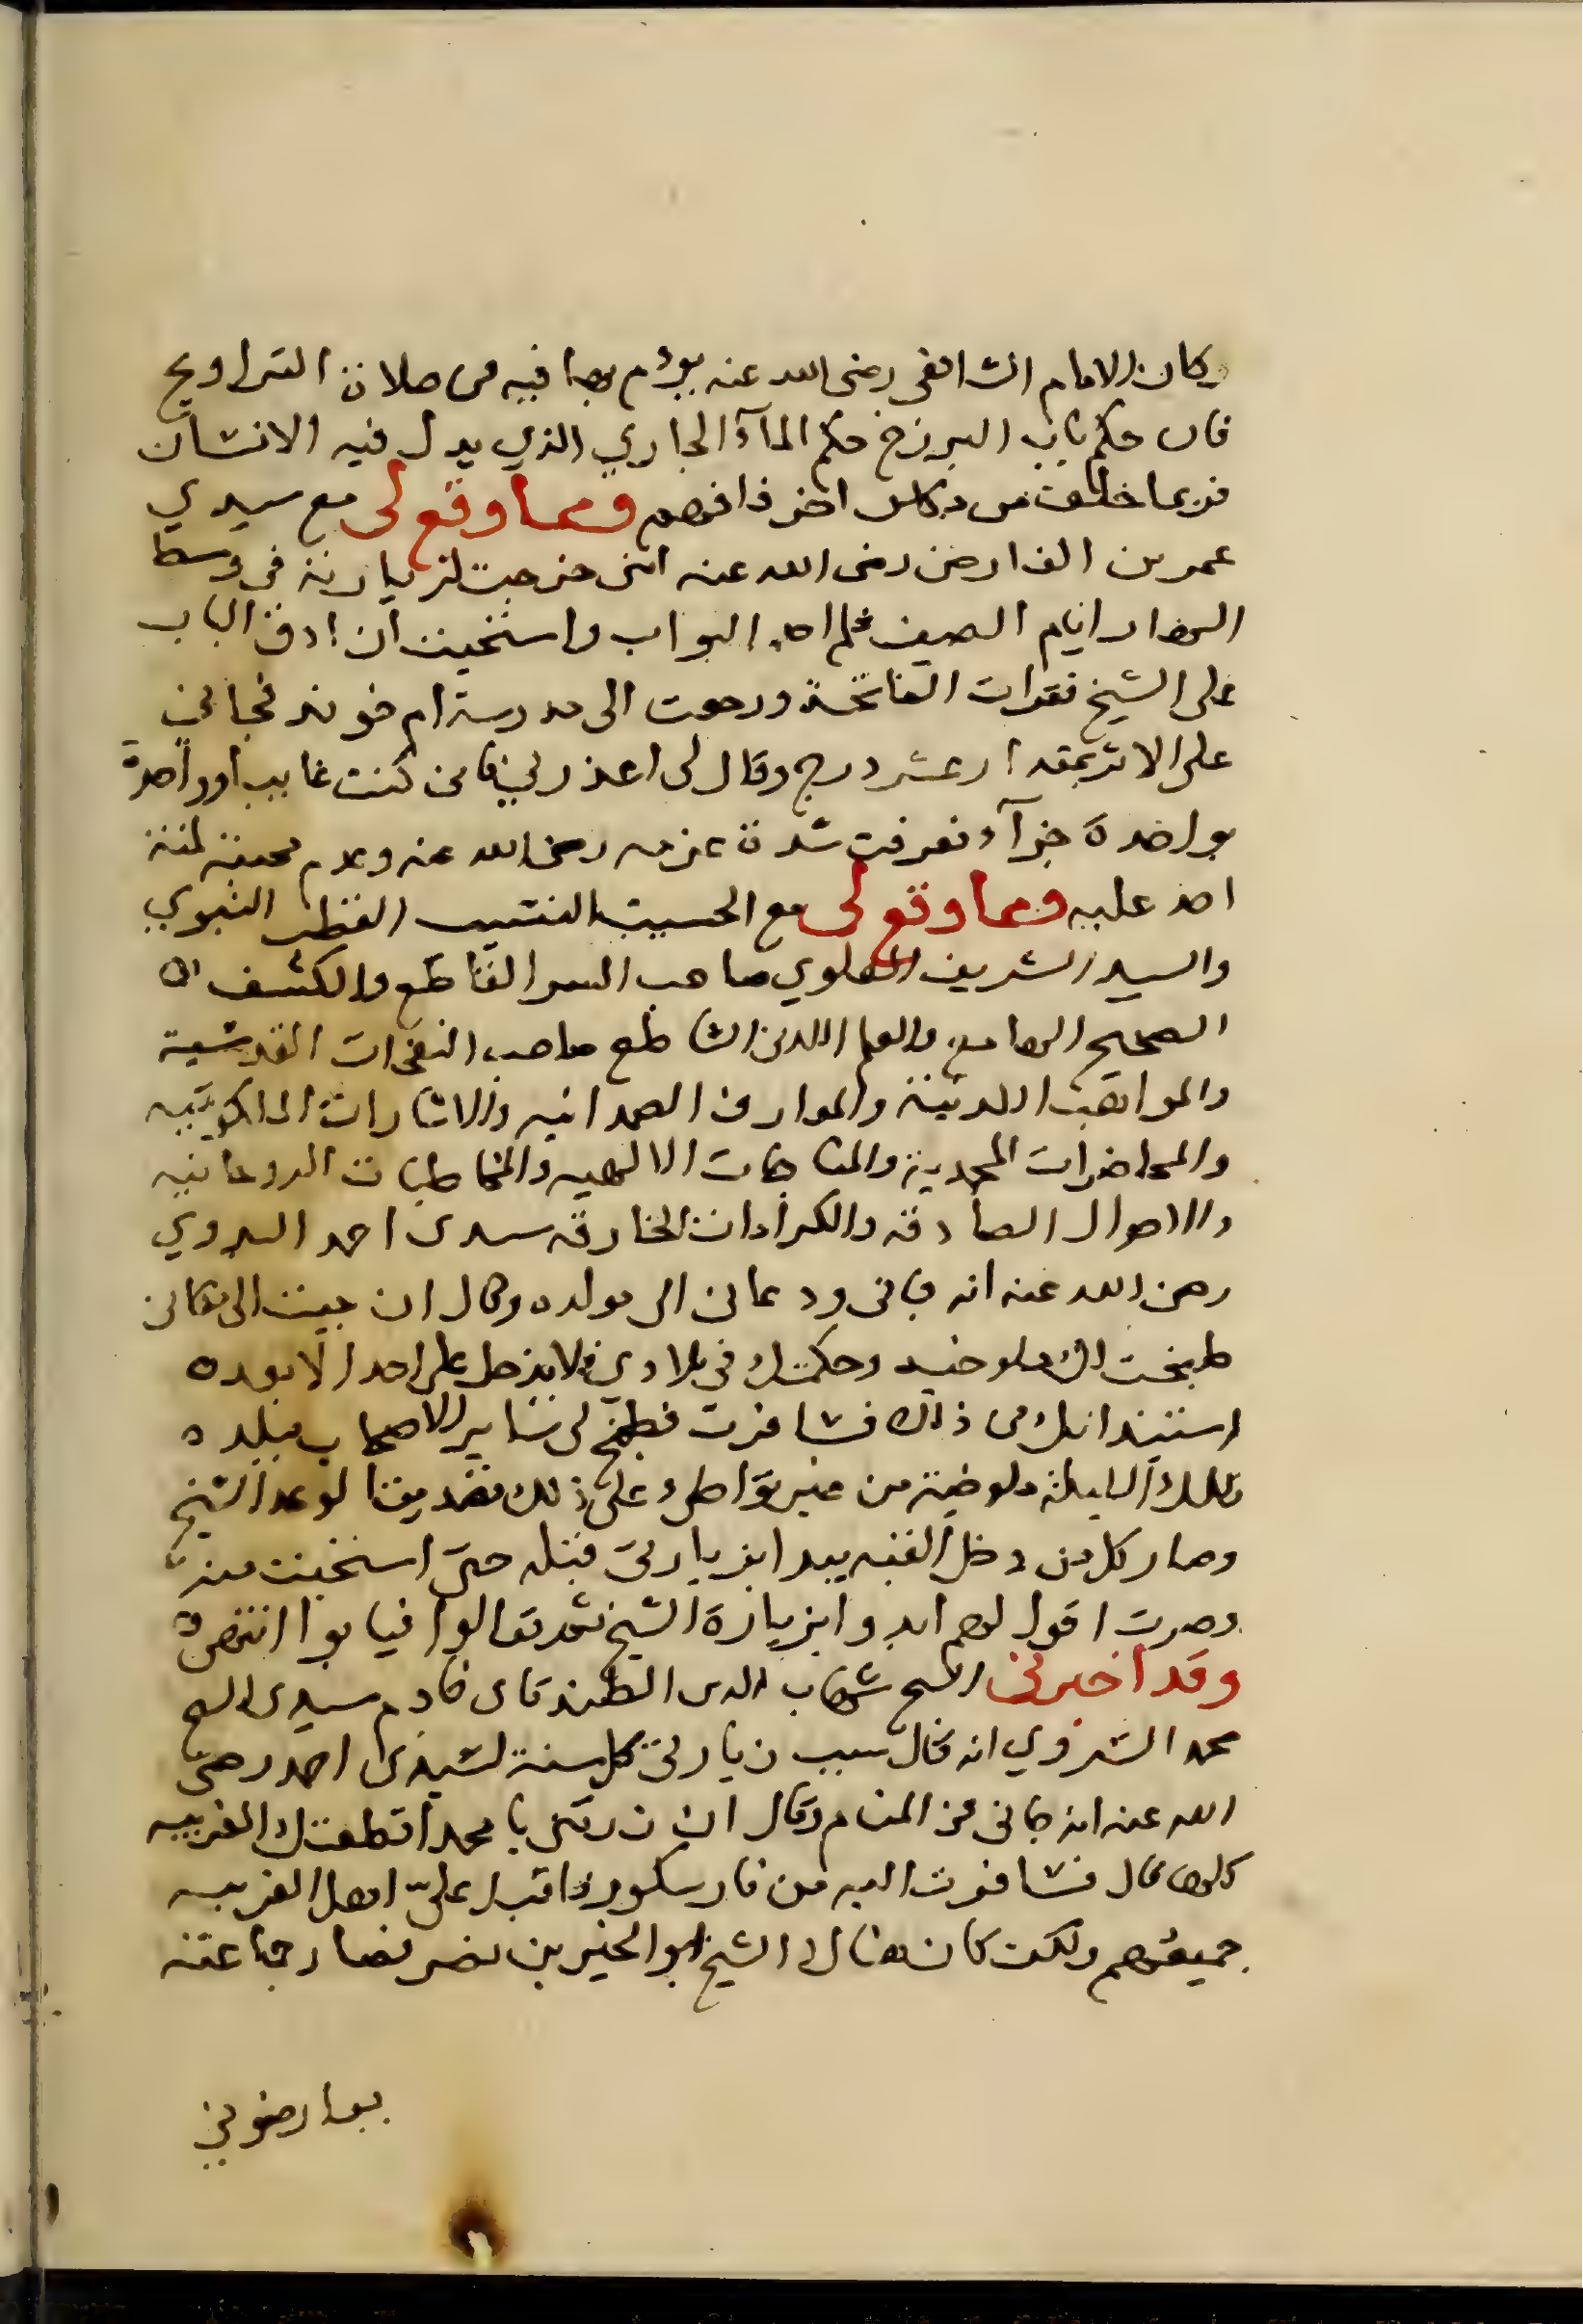 وكان الامام الشافعي رضي الله عنه يؤم بها فيه في صلاة التراويح
فان حكم باب البرزخ حكم المآء الجاري الذي يدلى فيه الانسان
فربما خالفت من مكان اخر فافهم ومما وقع لى مع سيدي
عمر بن الفارض رضى الله عنه انني خرجت لزيارته في وسط
النهار ايام الصيف فلم اجد البواب واستحييت ان ادق الباب
على الشيخ فقرات الفاتحة ورجعت الى مدرسة ام خوند فجاني
على الاثر بمقدار عشر درج وقال لى اعذرني فاني كنت غايبا وواحدة
بواحدة جزآء فعرفت شدة عزمه رضى الله عنه وعدم محبته لمنة
احد عليه ومما وقع لى مع الحسيب النسيب القطب النبوي
والسيد الشريف العلوي صاحب السر القاطع والكشف
الصحيح الهامع والعلم اللدني الساطع صاحب النفحات القدسية
والمواهب اللدنية والموارد الصمدانيه والاشارات الملكوتيه
والمحاضرات المحمدية والمناجات الالهيه والمخاطبات الروحانيه
والاحوال الصادقه والكرامات الخارقه سيدى احمد البدوي
رضى الله عنه انه جانى ودعانى الى مولده وقال ان جيت الى مكانى
طبخت لك ملوخيه وحكمتك فى بلادي فلا يدخل على احد الا بعد
استيذانك فى ذلك فسافرت فطبخ لى ساير الاصحاب ببلده
تلك الليلة ملوخية من غير تواطىء على ذلك تصديقا لوعد الشيخ
وصار كل من دخل القبه يبدا بزيارتى قبله حتى استحييت منه
وصرت اقول لهم ابدوا بزيارة الشيخ ثم تعالوا فيابوا انتهى
وقد اخبرنى الشيخ شهاب الدين الطندتاى خادم سيدى الشيخ
محمد الشناوي انه قال سبب زيارتى كل سنة لسيدى احمد رضى
الله عنه انه جانى فى المنام وقال ان زرتنى يا محمد اقطعتك الغربيه
كلها قال فسافرت اليه من فارسكور فاقبل على اهل الغربيه
جميعهم ولكن كان هناك الشيخ ابو الخير بن نصر فصار جماعته
يعارضوني